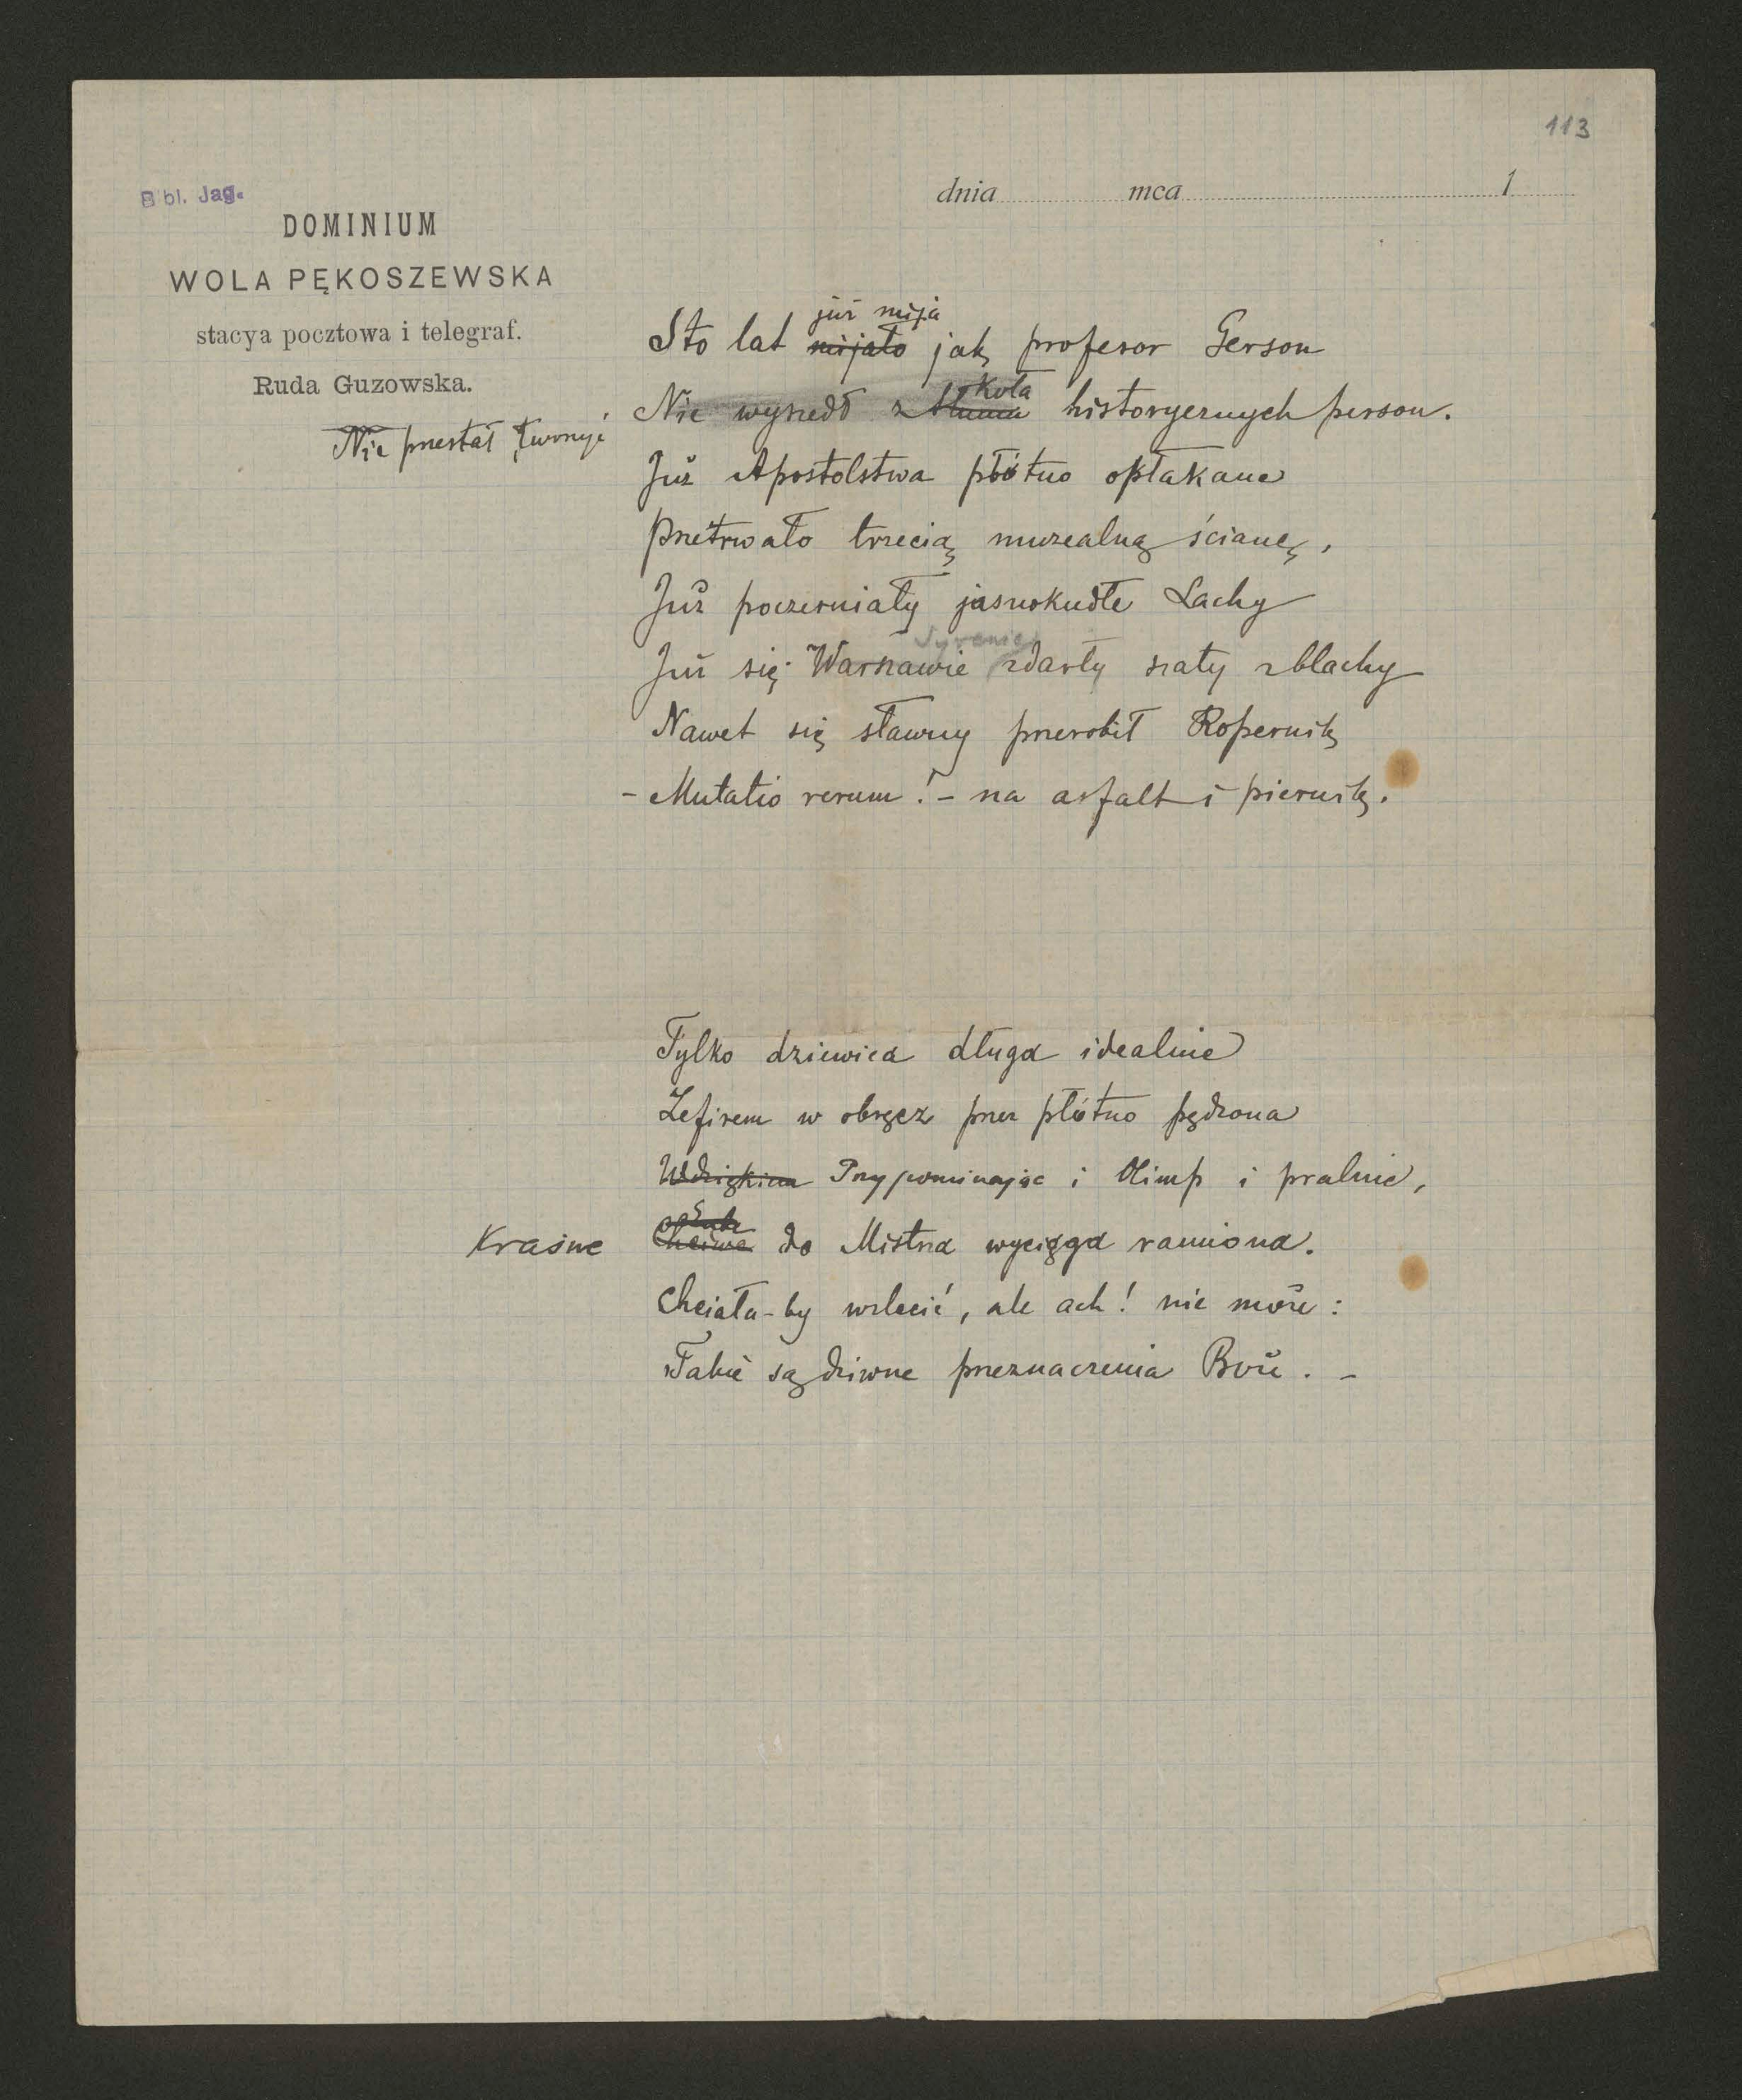 113
Bibl. Jag.
dnia mca 1
DOMINIUM
WOLA PĘKOSZEWSKA
stacya pocztowa i telegraf.
Ruda Guzowska.
już mija
Sto lat mijało jak profesor Gerson
koła
Nie wyszedł z tłumu historycznych person.
Nie przestał tworzyć
Już Apostolstwa płótno opłakane
Przetrwało trzecią muzealną ścianę,
Już poczerniały jasnokudłe Lachy
Syrenie
Już się Warszawie zdarły szaty z blachy
Nawet się sławny przerobił Kopernik
- Mutatio rerum! - na asfalt i piernik.
Tylko dziewica długa idealnie
Zefirem w obręcz przez płótno pędzona
Przypominając i Olimp i pralnie,
Kraśne
do Mistrza wyciąga ramiona.
Chciała-by wzlecić, ale ach! nie może:
Takie są dziwne przeznaczenia Boże. -